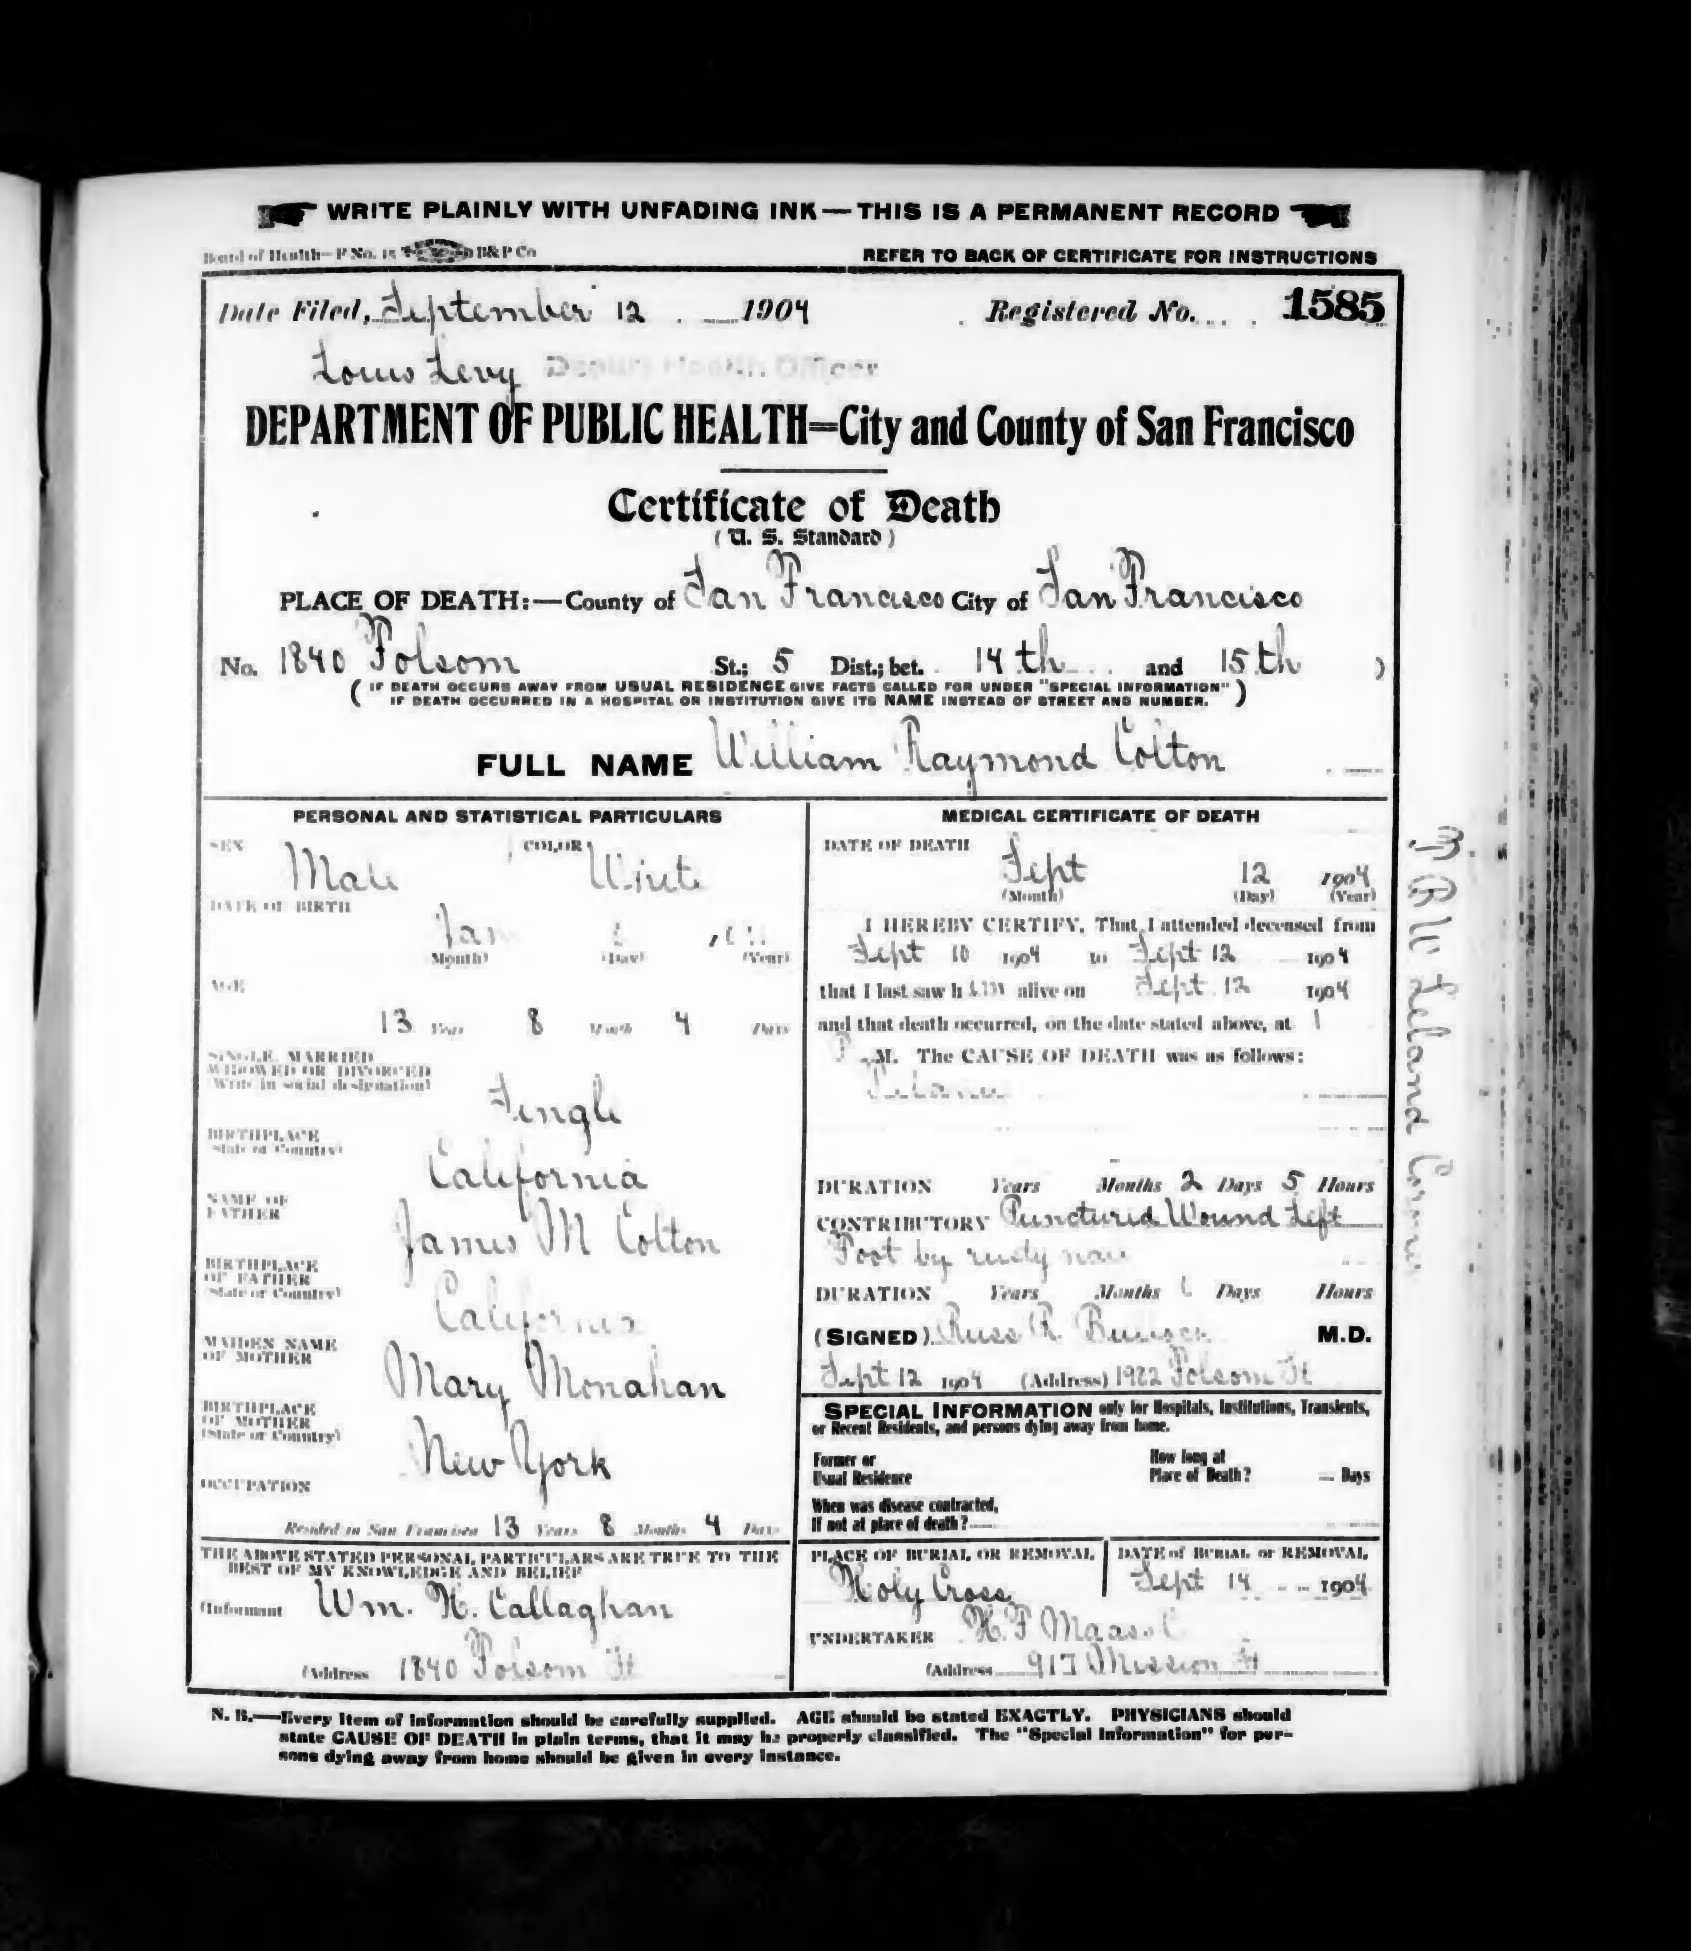 WRITE PLAINLY WITH UNFADING INK—THIS IS A PERMANENT RECORD
Board of Health—F No. 15 B&P Co REFER TO BACK OF CERTIFICATE FOR INSTRUCTIONS
Date Filed, September 12 1904 Registered No. 1585
Louis Levy Deputy Health Officer
DEPARTMENT OF PUBLIC HEALTH=City and County of San Francisco
Certificate of Death
(U. S. Standard)
PLACE OF DEATH:—County of San Francisco City of San Francisco
No. 1840 Folsom St.; 5 Dist.; bet. 14th and 15th )
( IF DEATH OCCURS AWAY FROM USUAL RESIDENCE GIVE FACTS CALLED FOR UNDER "SPECIAL INFORMATION"
IF DEATH OCCURRED IN A HOSPITAL OR INSTITUTION GIVE ITS NAME INSTEAD OF STREET AND NUMBER. )
FULL NAME William Raymond Colton
PERSONAL AND STATISTICAL PARTICULARS
SEX Male COLOR White
DATE OF BIRTH
Jan
(Month) (Day) (Year)
AGE
13 Years 8 Months 4 Days
SINGLE, MARRIED
WIDOWED OR DIVORCED
(Write in social designation)
Single
BIRTHPLACE
(State or Country)
California
NAME OF
FATHER
James M Colton
BIRTHPLACE
OF FATHER
(State or Country)
California
MAIDEN NAME
OF MOTHER
Mary Monahan
BIRTHPLACE
OF MOTHER
(State or Country)
New York
OCCUPATION
Resided in San Francisco 13 Years 8 Months 4 Days
THE ABOVE STATED PERSONAL PARTICULARS ARE TRUE TO THE
BEST OF MY KNOWLEDGE AND BELIEF
(Informant Wm. H. Callaghan
(Address 1840 Folsom St
MEDICAL CERTIFICATE OF DEATH
DATE OF DEATH
Sept 12 1904
(Month) (Day) (Year)
I HEREBY CERTIFY, That I attended deceased from
Sept 10 1904 to Sept 12 1904
that I last saw h im alive on Sept 12 1904
and that death occurred, on the date stated above, at 1
P M. The CAUSE OF DEATH was as follows:
Tetanus
DURATION Years Months 2 Days 5 Hours
CONTRIBUTORY Punctured Wound Left
Foot by rusty nail
DURATION Years Months Days Hours
(SIGNED) Russ R. M.D.
Sept 12 1904 (Address) 1922 Folsom St
SPECIAL INFORMATION only for Hospitals, Institutions, Transients,
or Recent Residents, and persons dying away from home.
Former or
Usual Residence
How long at
Place of Death? Days
When was disease contracted,
If not at place of death?
PLACE OF BURIAL OR REMOVAL
Holy Cross
DATE of BURIAL or REMOVAL
Sept 14 1904
UNDERTAKER H. F Maass C
(Address 917 Mission St
N. B.—Every item of information should be carefully supplied. AGE should be stated EXACTLY. PHYSICIANS should
state CAUSE OF DEATH in plain terms, that it may be properly classified. The "Special Information" for per-
sons dying away from home should be given in every instance.
Leland Coroner